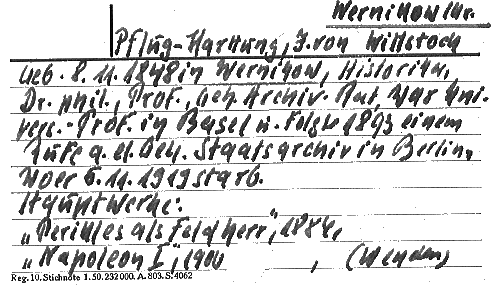 Wernikow Kr.
Pflugk-Harttung, J. von Wittstock
Geb. 8.11.1848 in Wernikow, Historiker,
Dr. phil., Prof., Geh. Archiv-Rat, war Uni-
vers.-Prof. in Basel u. folgte 1893 einem
Rufe a. d. Geh. Staatsarchiv in Berlin,
wo er 5.11.1919 starb.
Hauptwerke:
„Perikles als Feldherr", 1884,
„Napoleon I", 1900 , (Weyden)
Reg. 10. Stichnote 1. 50. 232000. A. 803. S. 4062